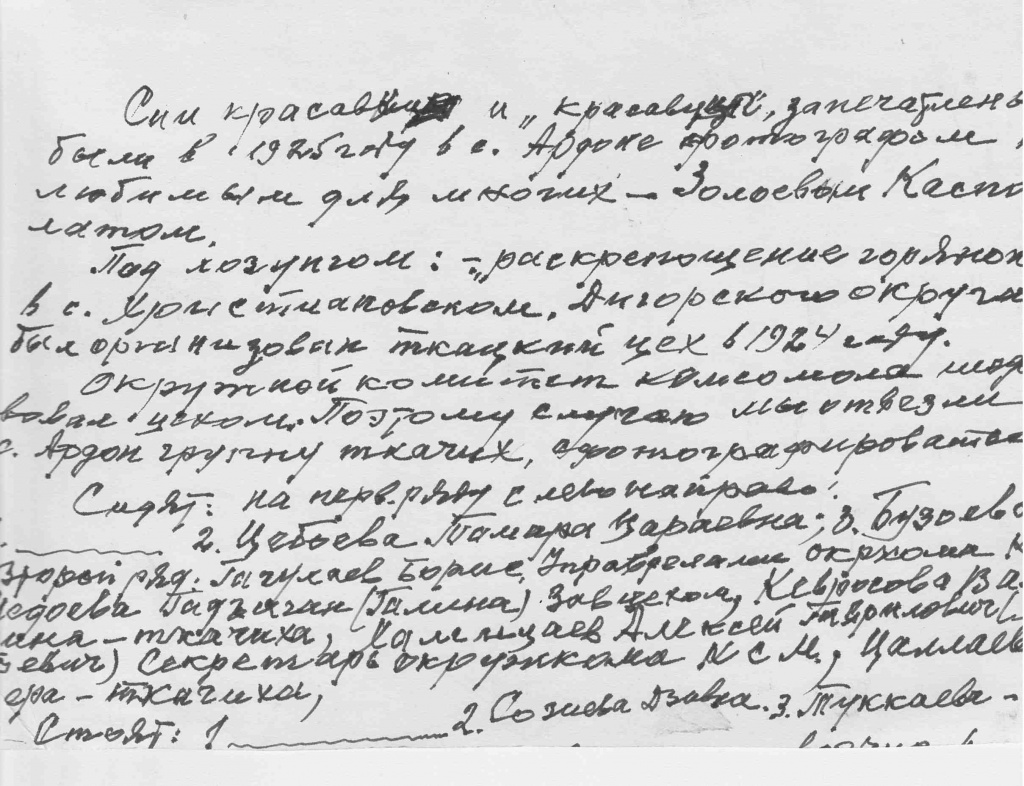 Сии красавицы и „красавцы", запечатлены
были в 1925 году в с. Ардоне фотографом
любимым для многих – Золоевым Каспо
латом.
Под лозунгом: – „раскрепощение горянок
в с. Христиановском, Дигорского округа
был организован ткацкий цех в 1924 году.
Окружной комитет комсомола шеф
вовал цехом. Поэтому случаю мы отвезли
с. Ардон группу ткачих, сфотографироваться
Сидят: на перв. ряду с лево направо:
2. Цебоева Тамара Цараевна; 3. Бузоева
Второй ряд. Гачулаев Борис, Управделами окркома К
Гадзыган (Галина) Завцехом, Кевросова Ва
ина – ткачиха, Хамицаев Алексей Гаврилович (
евич) Секретарь окружкома КСМ, Цаллаев
ера – ткачиха,
Стоят: 1 2. Созиева Дзавка. 3. Туккаева –